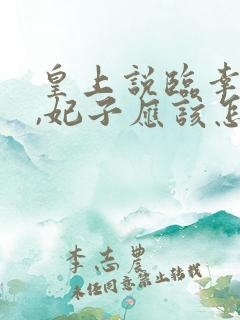 皇上說臨幸
,妃子應該怎
李志農
未經同意禁止轉載